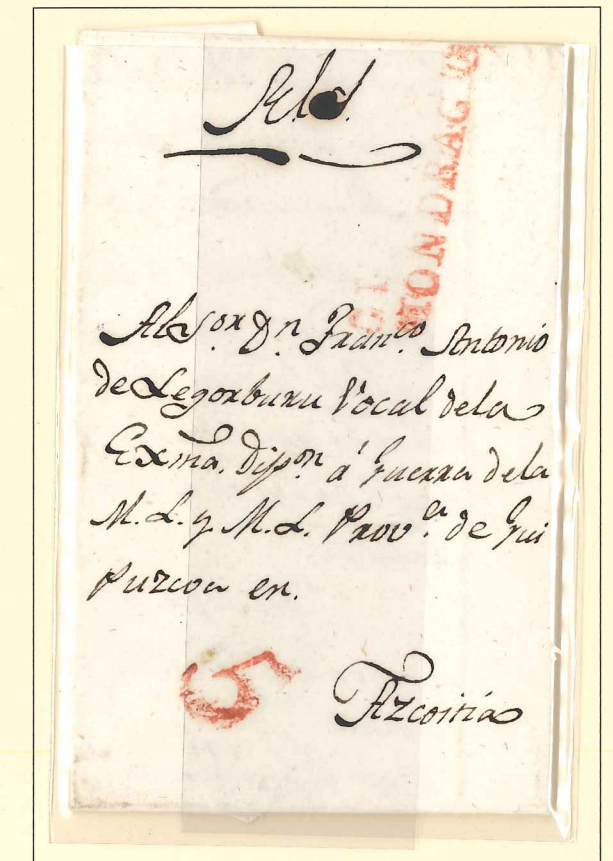 Rl. S.
MONDRAGON
Al Sor. Dn. Franco. Antonio
de Legorburu Vocal dela
Exma. Dipon. á guerra dela
M. N. y M. L. Prova. de Gui
puzcoa en.
5
Azcoitia